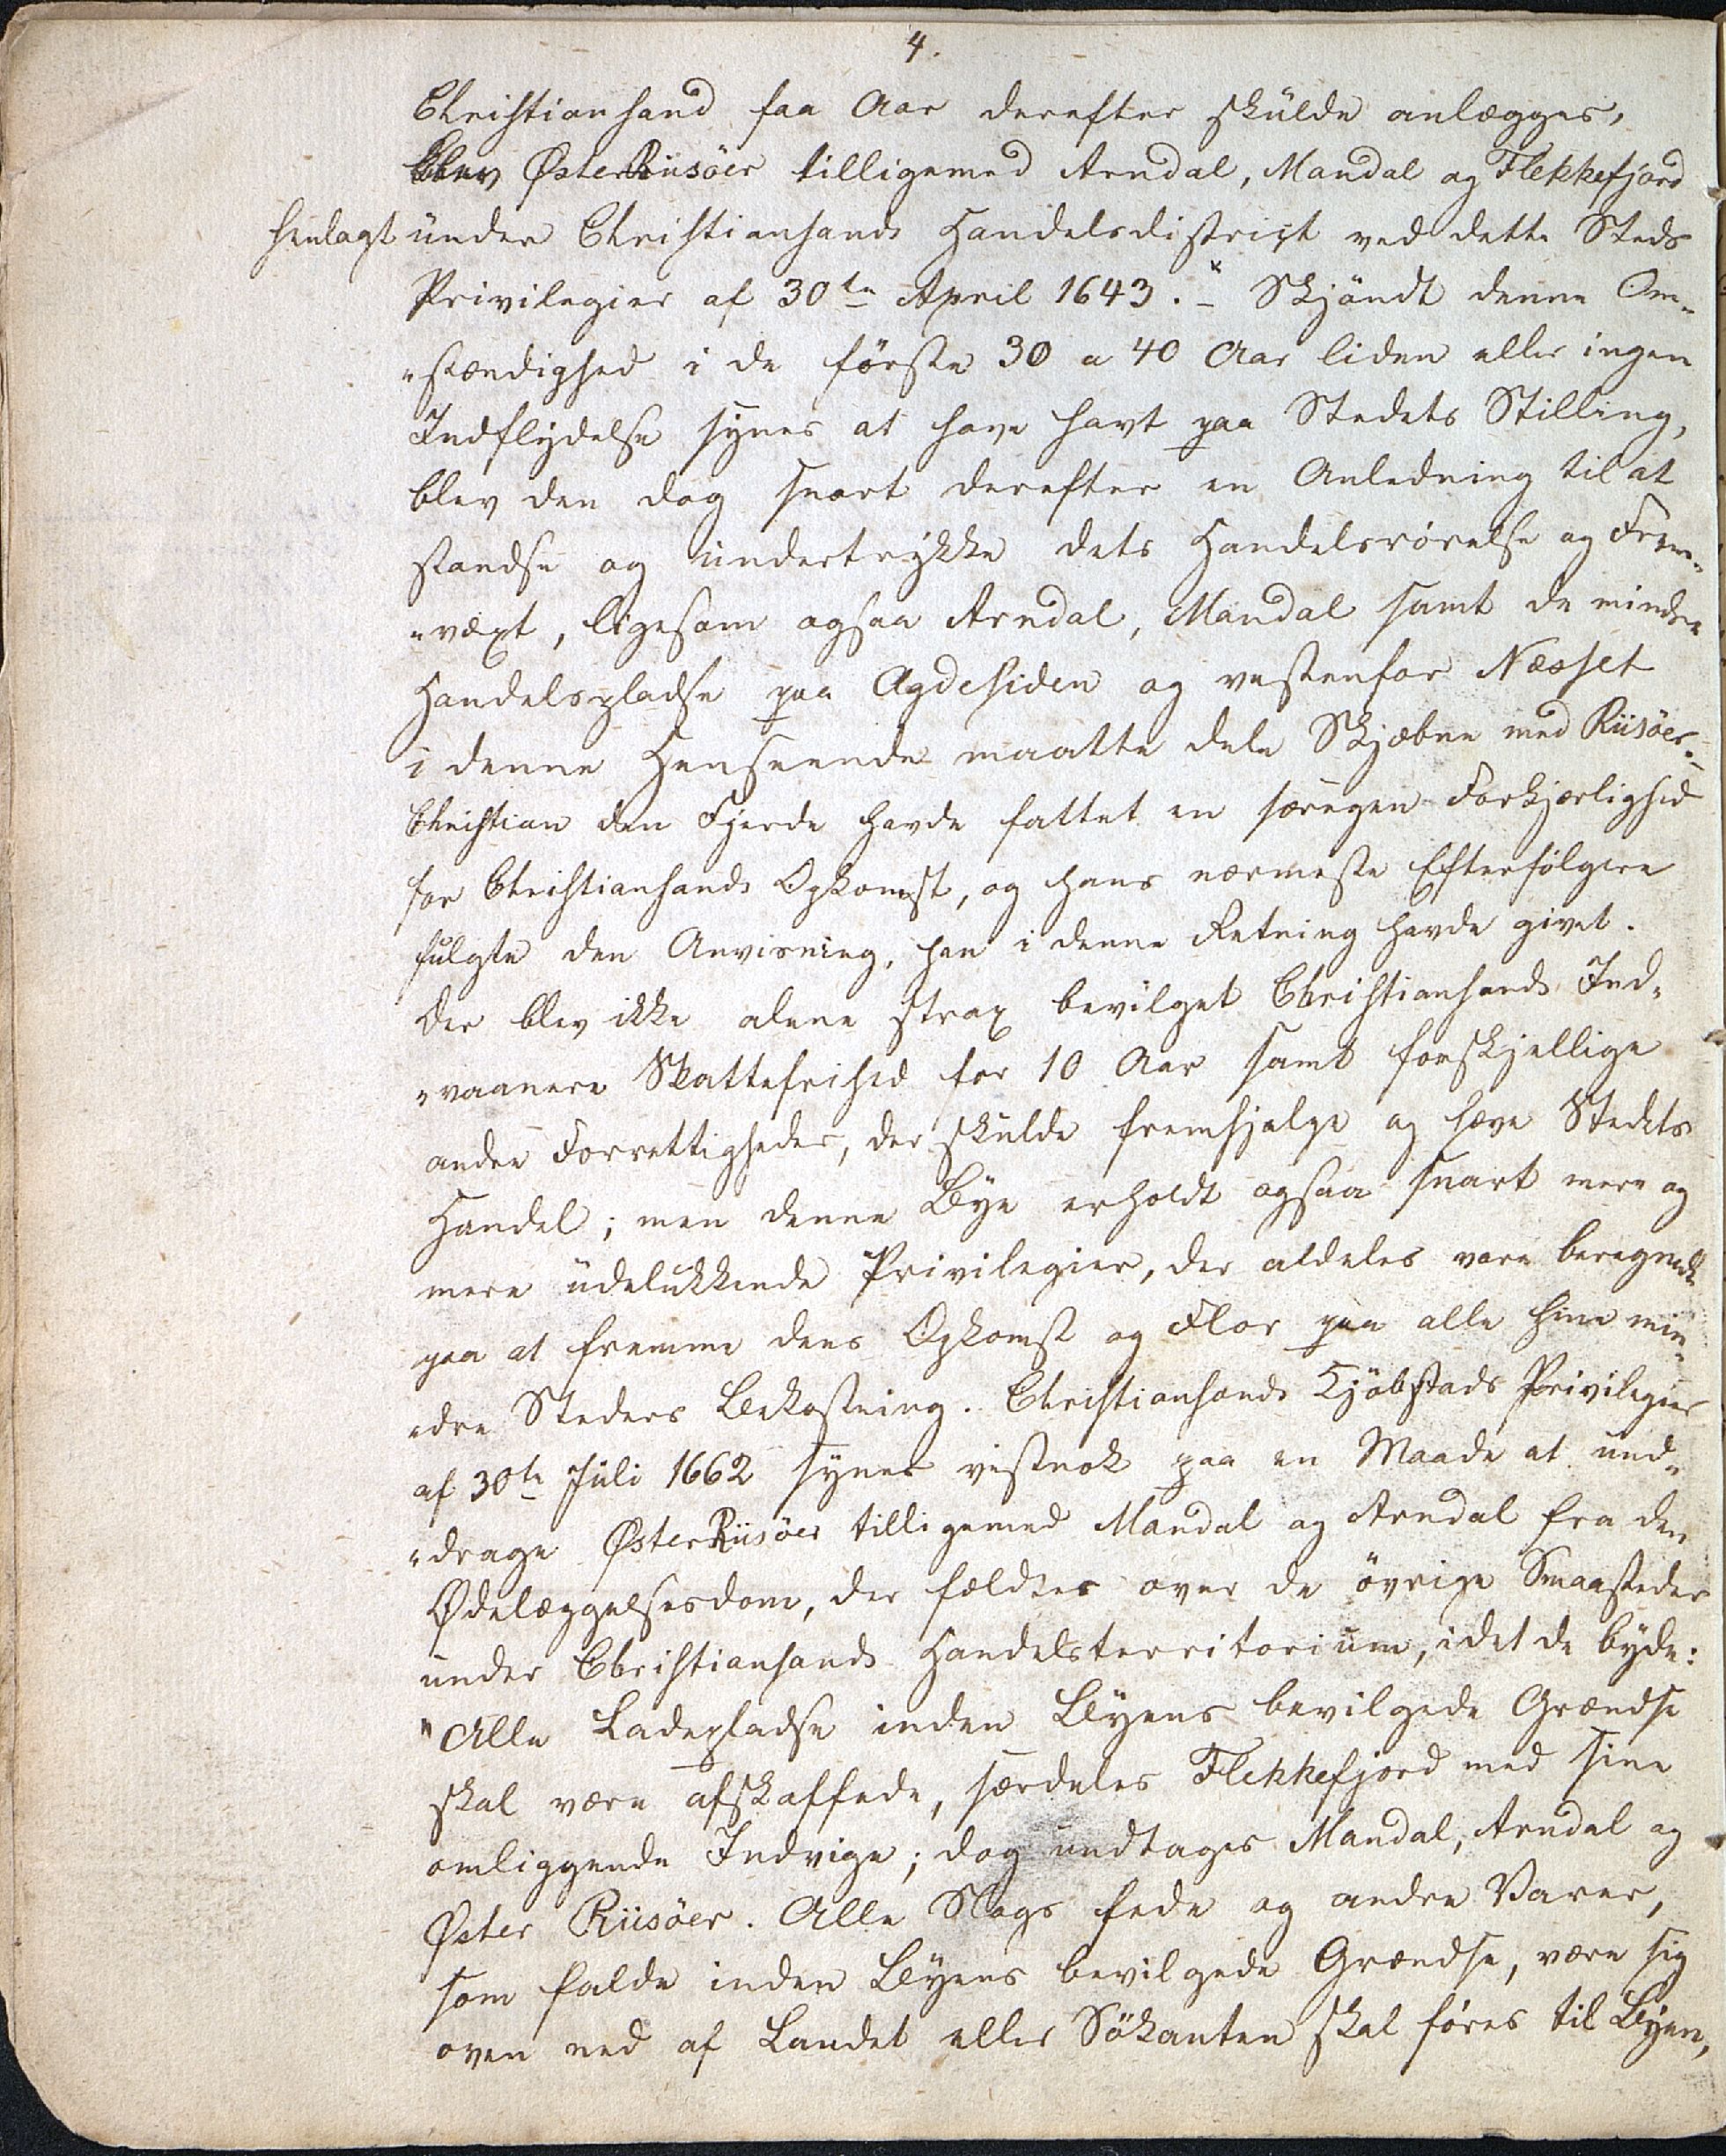 4.
Christiansand faa Aar derefter skulde anlægges,
blev ØsterRiisöer tilligemed Arndal, Mandal og Flekkefjord
henlagt under Christiansands Handelsdistrigt ved dette Steds
Privilegier af 30te April 1643.x – Skjöndt denne Om-
-stændighed i de förste 30 a 40 Aar liden eller ingen
Indflydelse synes at have havt paa Stedets Stilling,
blev den dog snart derefter en Anledning til at
standse og undertrykke dets Handelsrörelse og Frem-
-væxt, ligesom ogsaa Arndal, Mandal samt de mindre
Handelspladse paa Agdesiden og vestenfor Næsset
i denne Henseende maatte dele Skjæbne med Riisöer. –
Christian den Fjerde havde fattet en særegen Forkjærlighed
for Christiansands Opkomst, og hans nærmeste Efterfölgere
fulgte den Anvisning, han i denne Retning havde givet.
Der blev ikke alene strax bevilget Christiansands Ind-
-vaanere Skattefrihed for 10 Aar samt forskjellige
andre Forrettigheder, der skulde fremhjælpe og hæve Stedets
Handel; men denne Bye erholdt ogsaa snart mere og
mere udelukkende Privilegier, der aldeles vare beregnede
paa at fremme dens Opkomst og Flor paa alle hine min-
-dre Steders Bekostning. Christiansands Kjöbstads Privilegier
af 30te Juli 1662 synes vistnok paa en Maade at und-
-drage ØsterRiisöer tilligemed Mandal og Arndal fra den
Ødelæggelsesdom, der fældtes over de övrige Smaasteder
under Christiansands Handelsterritorium, idet de byde:
"Alle Ladepladse inden Byens bevilgede Grændse
skal være afskaffede, særdeles Flekkefjord med sine
omliggende Indvige; dog undtages Mandal, Arndal og
Øster Riisöer. Alle Slags fede og andre Varer,
som falde inden Byens bevilgede Grændse, være sig
oven ned af Landet eller Sökanten skal föres til Byen,